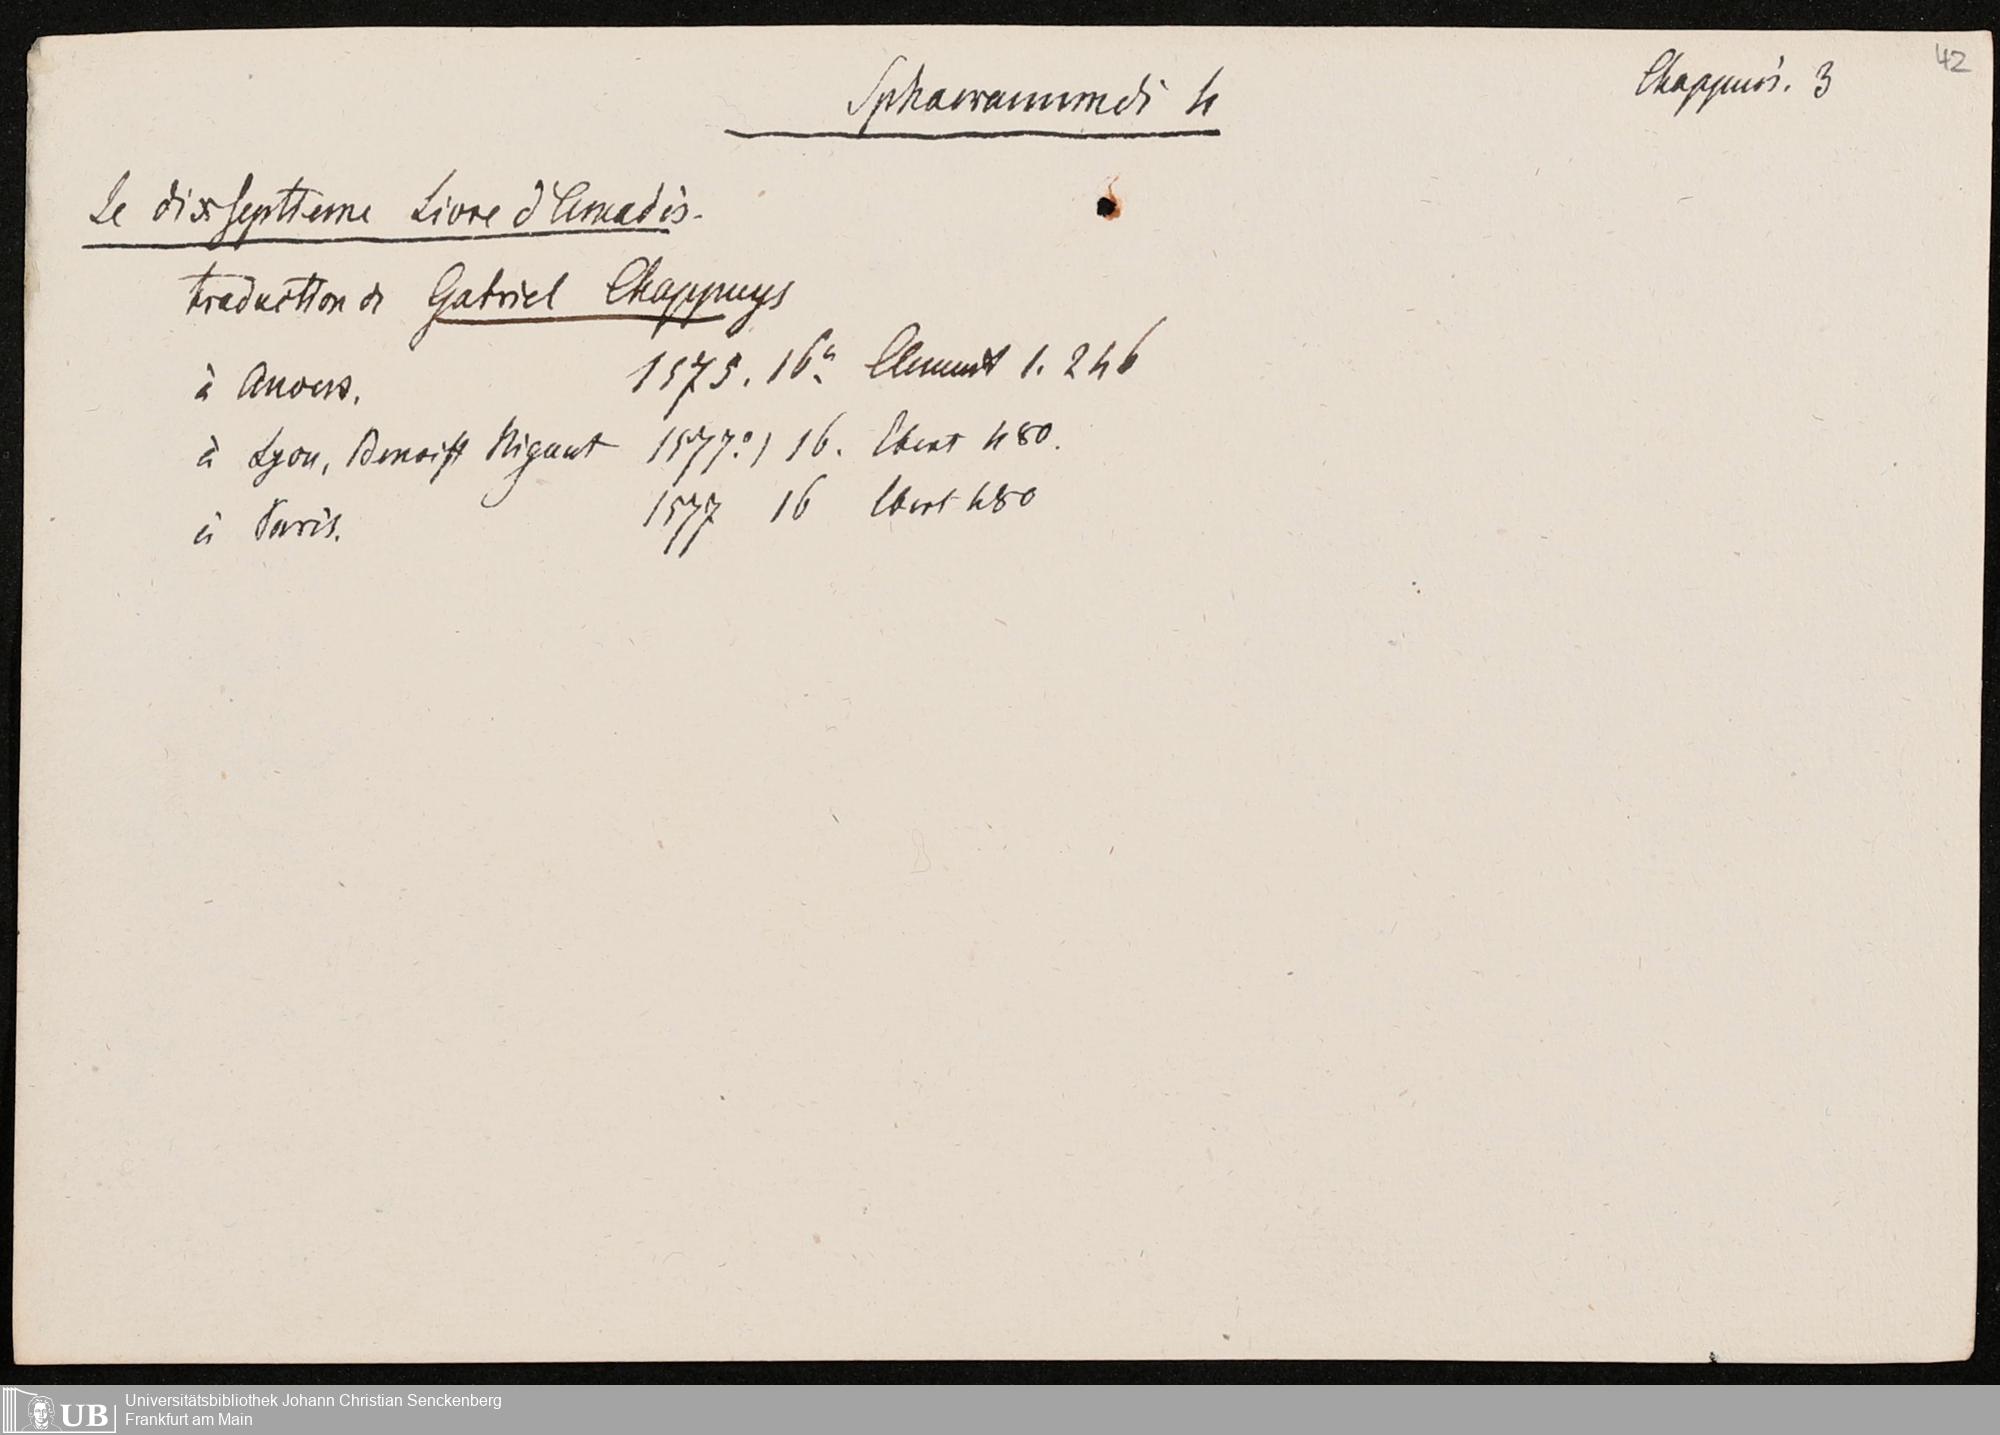 42
Chappuis. 3
Sphaeramundi 4
Le dixseptieme Livre d'Amadis.
traduction de Gabriel Chappuys
à Anvers. 1575. 16° Clement 1. 246
à Lyon, Benoist Rigaut 1577.) 16. Ebert 480.
à Paris. 1577 16 Ebert 480
UB
Universitätsbibliothek Johann Christian Senckenberg
Frankfurt am Main